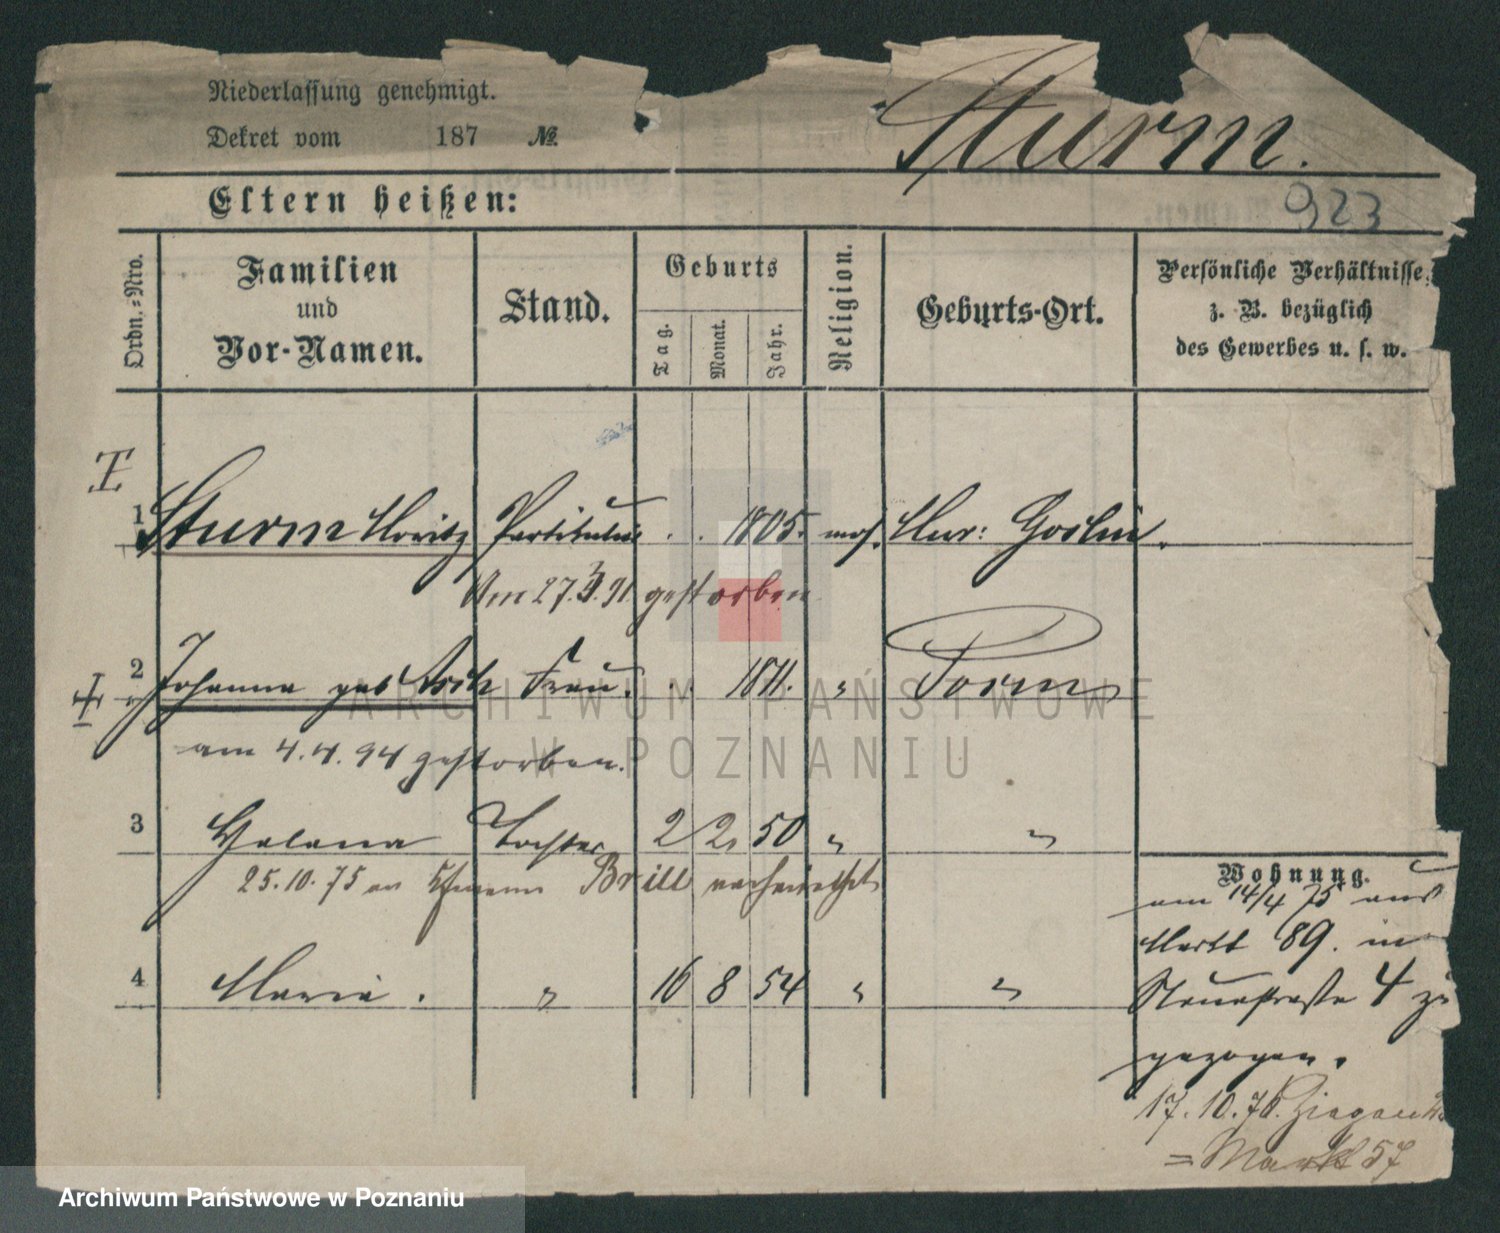 Niederlassung genehmigt.
Dekret vom 187 №
Sturm.
923
Eltern heißen:
Ordn.-Nro.
Familien und Vor-Namen.
Stand.
Geburts
Tag. Monat. Jahr.
Religion.
Geburts-Ort.
Persönliche Verhältnisse z. B. bezüglich des Gewerbes u. s. w.
1 Sturm Moritz Partikulier . . 1805. mos. Mur: Goslin.
Am 27.3.91. gestorben
2 Johanna geb Asch Frau. . . 1811. " Posen
am 4.4.94 gestorben.
3 Helena Tochter 2 2. 50 " "
25.10.75 an Ehmann Brill verheirathet
4 Maria. " 16 8 54 " "
Wohnung.
am 14/4 75 aus
Markt 89. in
Neuestraße 4 zu
gezogen.
17.10.76. Ziegen
= Markt 57
ARCHIWUM PAŃSTWOWE
W POZNANIU
Archiwum Państwowe w Poznaniu